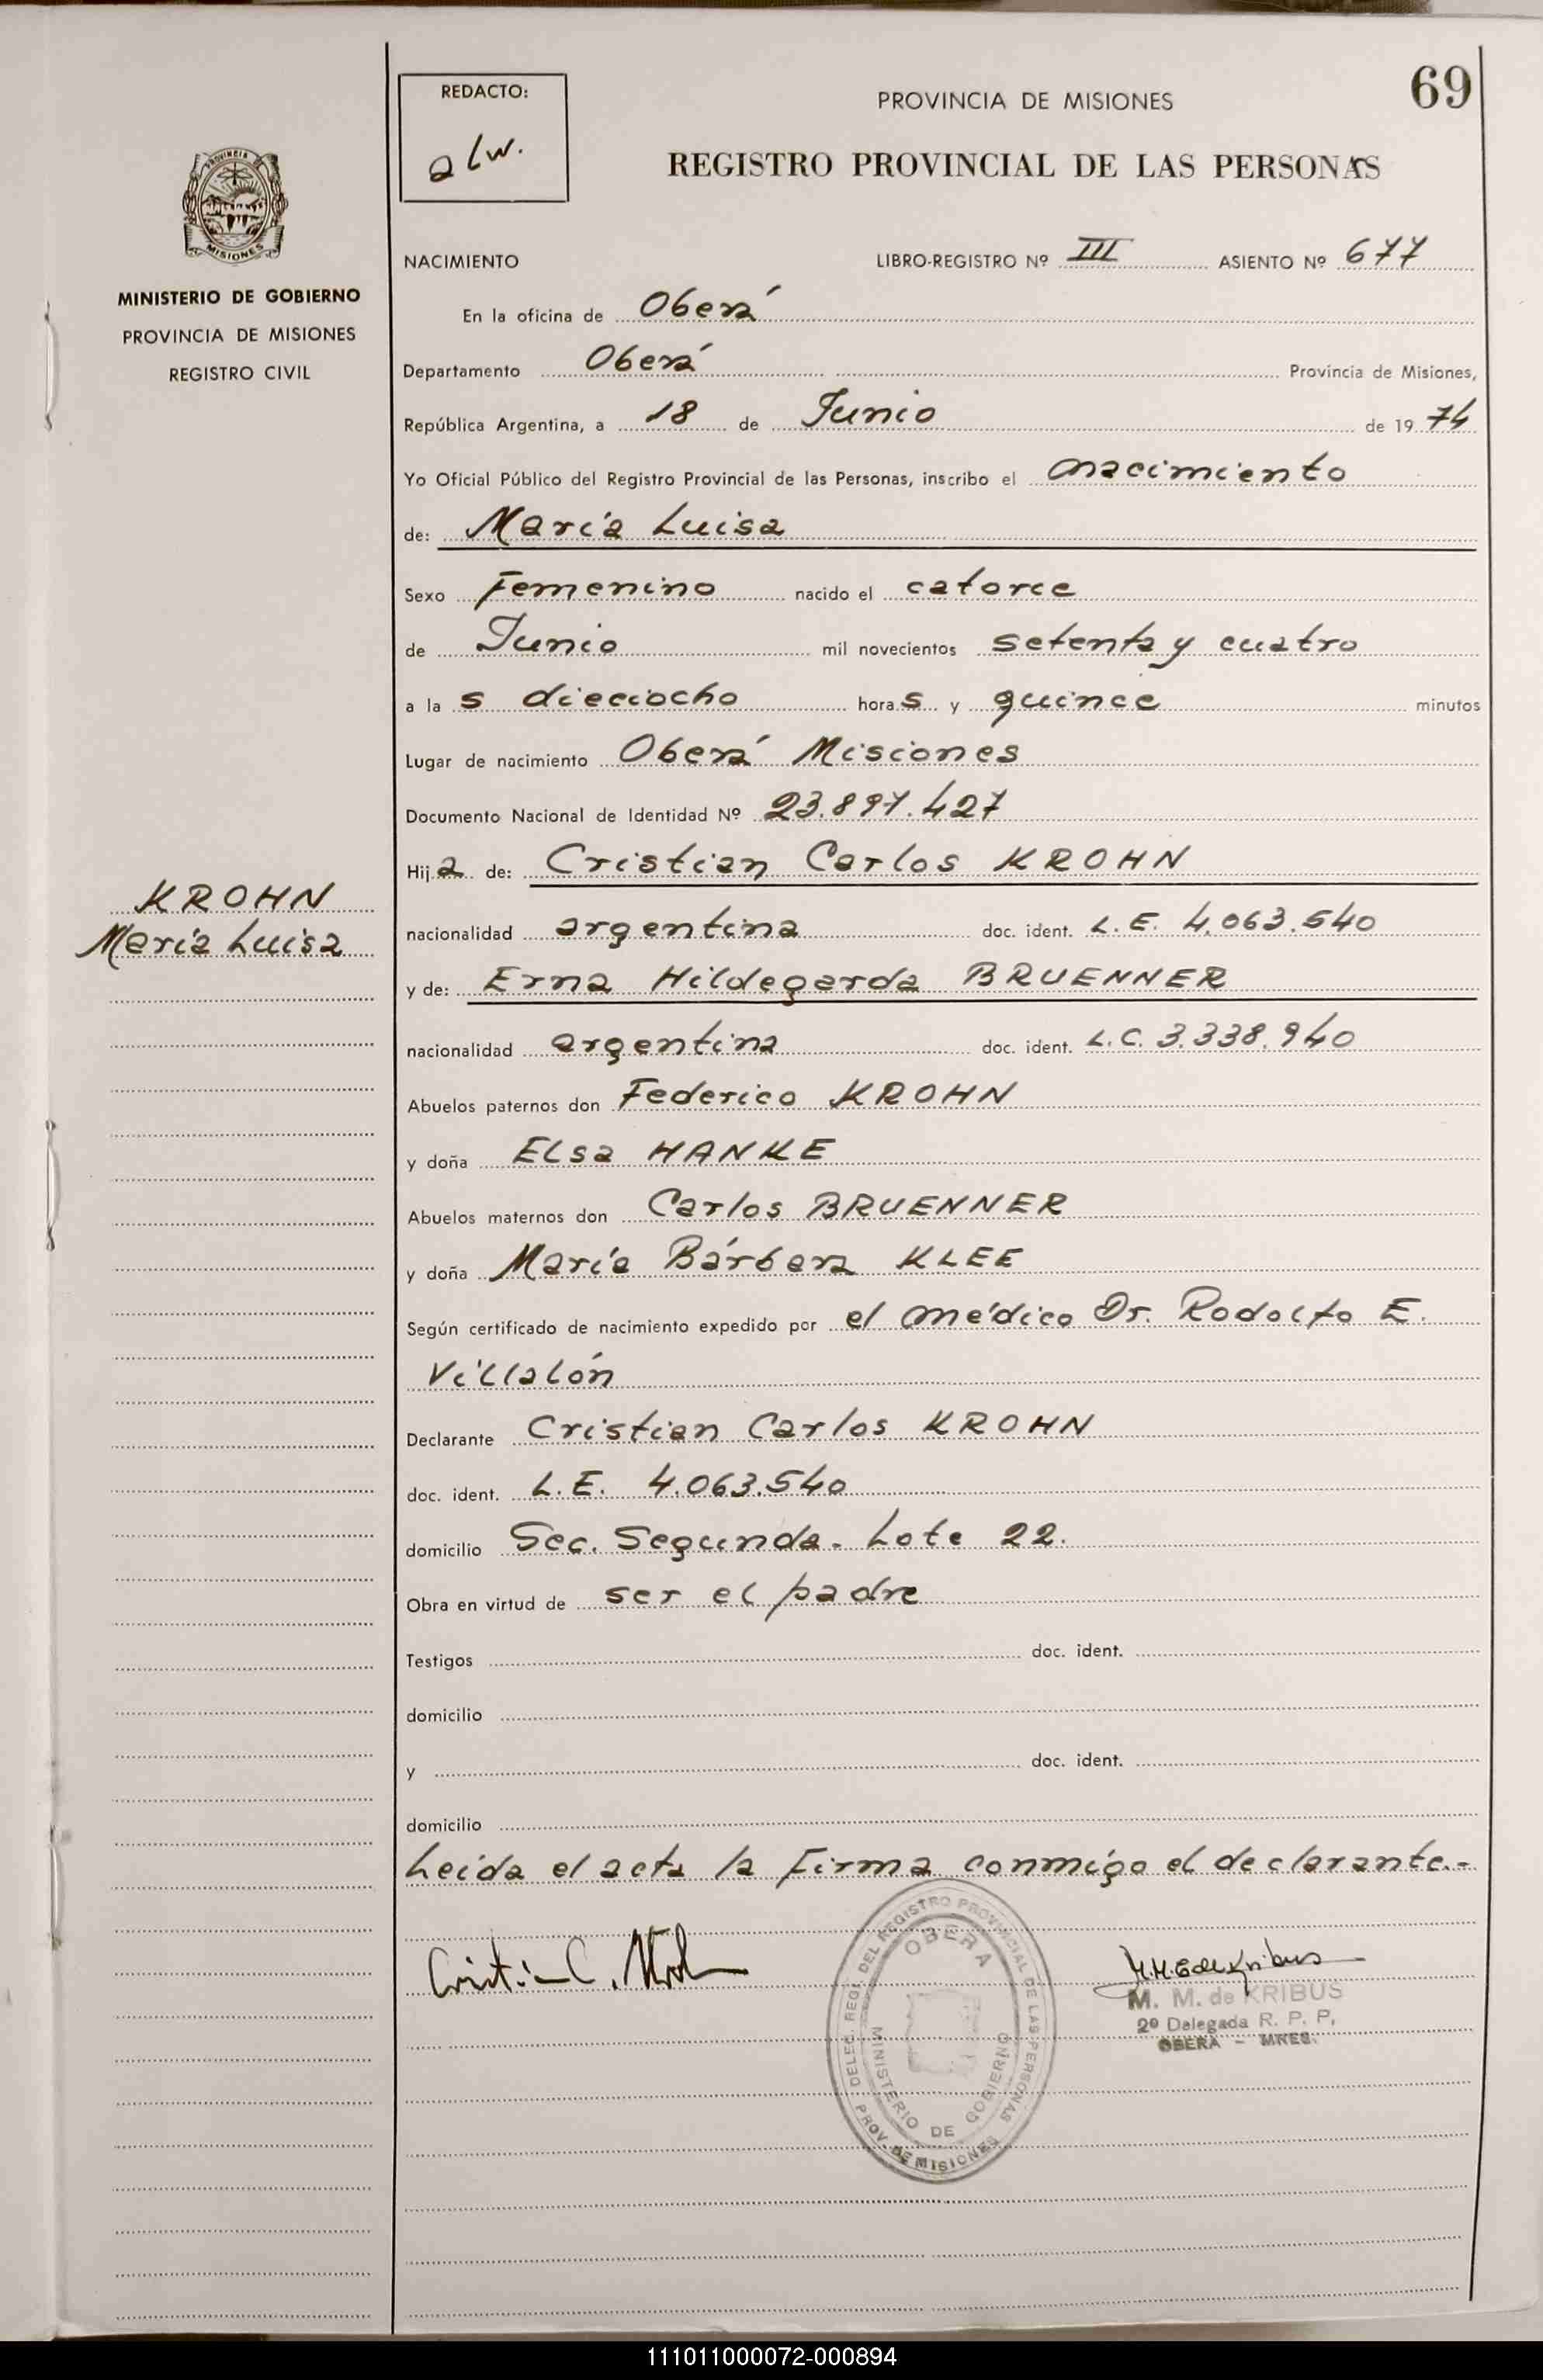 REDACTO:
alw.
PROVINCIA DE MISIONES
69
REGISTRO PROVINCIAL DE LAS PERSONAS
PROVINCIA DE
MISIONES
MINISTERIO DE GOBIERNO
PROVINCIA DE MISIONES
REGISTRO CIVIL
NACIMIENTO LIBRO-REGISTRO Nº III ASIENTO Nº 677
En la oficina de Oberá
Departamento Oberá Provincia de Misiones,
República Argentina, a 18 de Junio de 1974
Yo Oficial Público del Registro Provincial de las Personas, inscribo el nacimiento
de: María Luisa
Sexo Femenino nacido el catorce
de Junio mil novecientos setenta y cuatro
a las dieciocho horas y quince minutos
Lugar de nacimiento Oberá Misiones
Documento Nacional de Identidad Nº 23.897.427
Hija de: Cristian Carlos KROHN
KROHN
María Luisa
nacionalidad argentina doc. ident. L.E. 4.063.540
y de: Erna Hildegarda BRUENNER
nacionalidad argentina doc. ident. L.C. 3.338.940
Abuelos paternos don Federico KROHN
y doña Elsa HANKE
Abuelos maternos don Carlos BRUENNER
y doña María Bárbara KLEE
Según certificado de nacimiento expedido por el médico Dr. Rodolfo E.
Villalón
Declarante Cristian Carlos KROHN
doc. ident. L.E. 4.063.540
domicilio Sec. Segunda. Lote 22.
Obra en virtud de ser el padre
Testigos doc. ident.
domicilio
y doc. ident.
domicilio
Leída el acta la firma conmigo el declarante.-
Cristián C. Krohn
DELEG. REGI. DEL REGISTRO PROVINCIAL DE LAS PERSONAS
OBERA
MINISTERIO DE GOBIERNO
PROV. DE MISIONES
M. M. de KRIBUS
2º Delegada R. P. P.
OBERA - MNES.
111011000072-000894